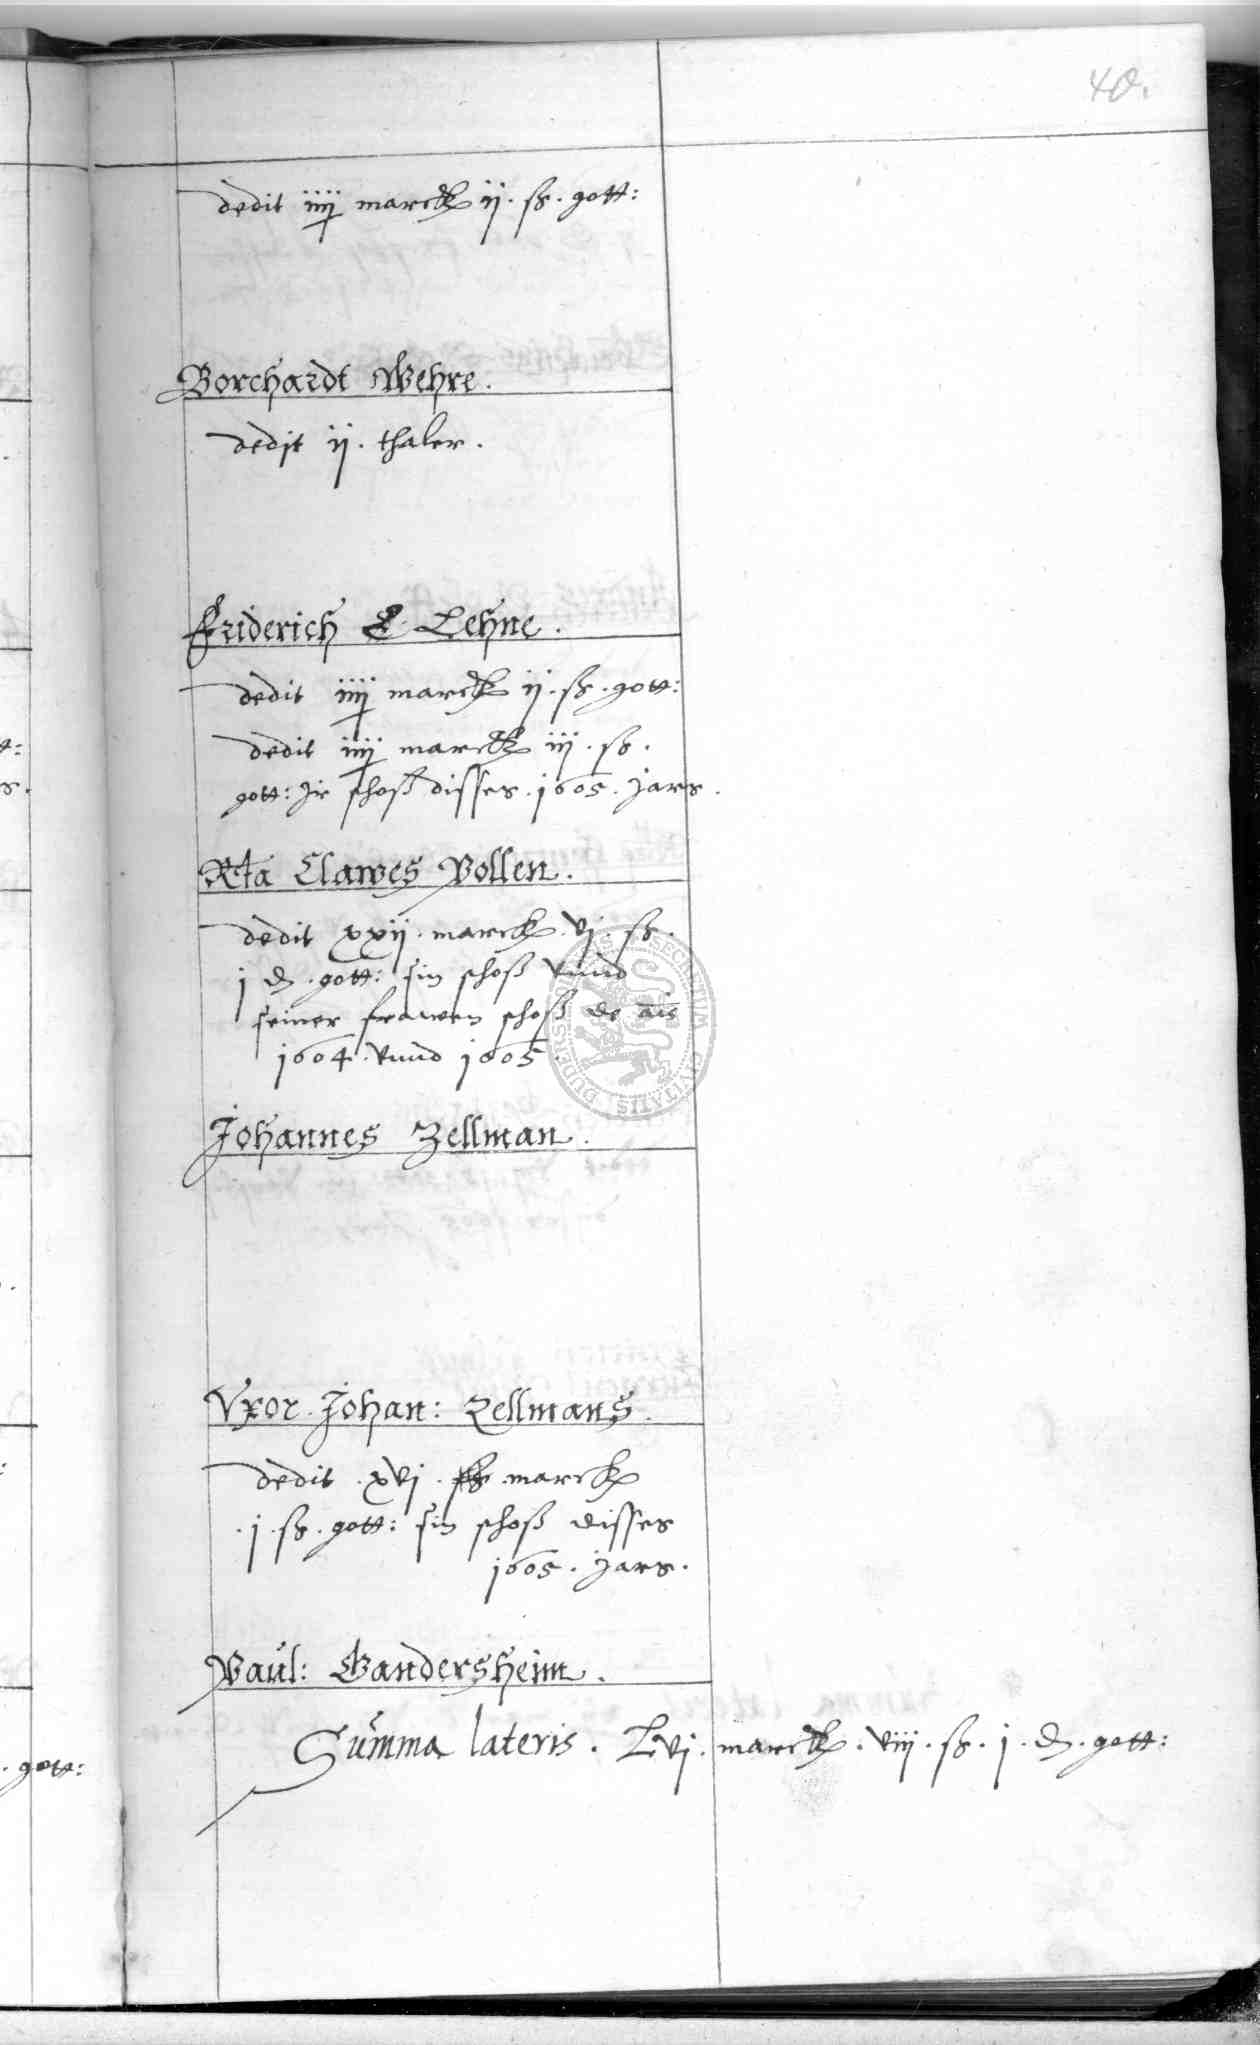 40.
dedit iiij marck ij. ß. gott:
Borchardt Wehre.
dedit ij. thaler.
Friderich Lehne.
dedit iiij marck ij. ß. gott:
dedit iiij marck iij. ß.
gott: Jr schoß disses. 1605. jars.
Rta Clawes Pollen.
dedit xxij. marck. vj. ß.
j d. gott: sin schoß vnnd
seiner frawen schoß de ais
1604. vnnd 1605.
Johannes Zellman.
Vxor. Johan: Zellmans.
dedit. xvj. marck
. j. ß. gott: sin schoß disses
1605. jars.
Paul: Gandersheim.
Summa lateris. Lvj. marck. viij. ß. j. d. gott:
. gott:
SECRETUM CIVITATIS DUDERS